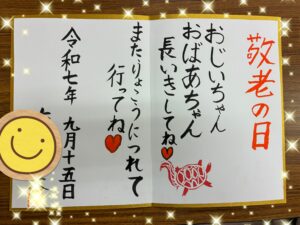 敬老の日
おじいちゃん
おばあちゃん
長いきしてね
またりょこうにつれて
行ってね
令和七年 九月十五日